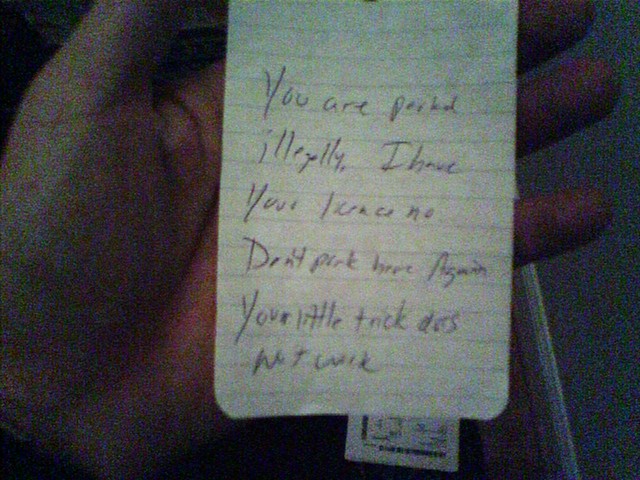 You are parked
illegally, I have
Your licence no
Don't park here Again
Your little trick does
Not work